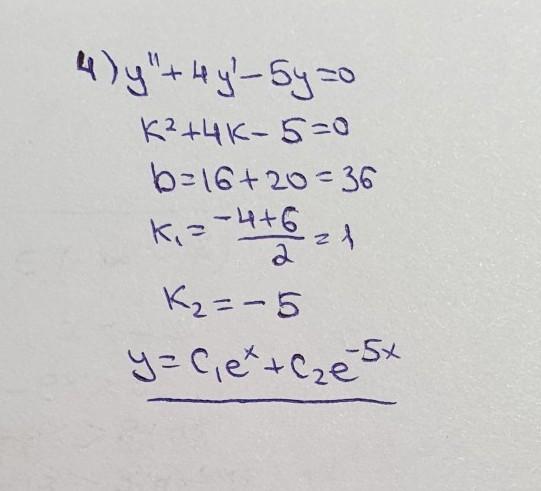 4) y'' + 4y' - 5y = 0
k² + 4k - 5 = 0
D = 16 + 20 = 36
k₁ = (-4+6)/2 = 1
k₂ = -5
y = C₁eˣ + C₂e⁻⁵ˣ